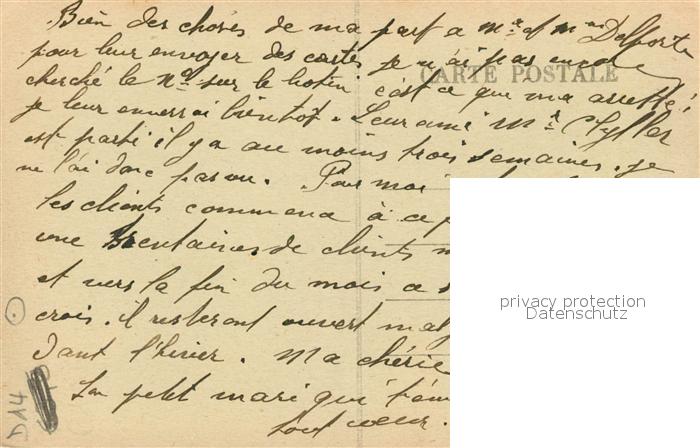 Bien des choses de ma part a Mr et Mme Delporte
pour leur envoyer des cartes je n'ai pas encore
CARTE POSTALE
cherché le No sur le botin c'est ce que ma arretté,
je leur enverrai bientot. Leur ami Mr
est parti il y a au moins trois semaines. je
ne l'ai donc pas vu. Pour moi
les clients commence à ce
une trentaines de clients
et vers la fin du mois
crois. il resteront ouvert
dant l'hiver. Ma chérie
Ton petit mari qui t'em
tout cœur.
D14
privacy protection
Datenschutz